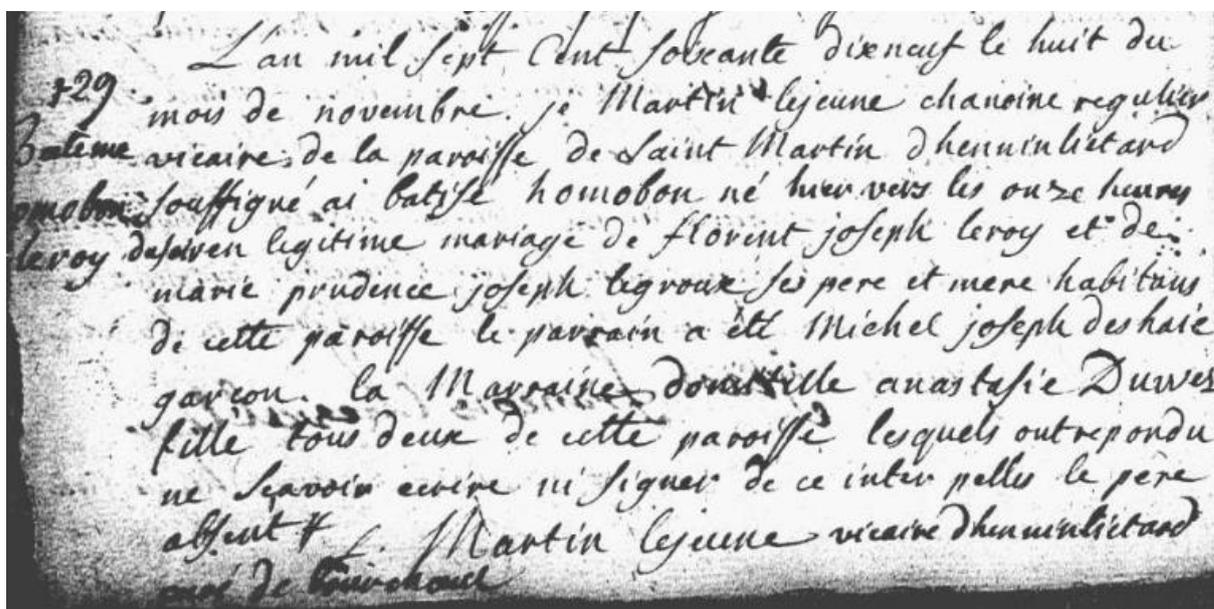 L'an mil sept Cent soixante dixneuf le huit du
129 mois de novembre je Martin lejeune chanoine regulier
Bateme vicaire de la paroisse de Saint Martin dhenninlietard
omobon soussigné ai batisé homobon né hier vers les onze heures
leroy du soir en legitime mariage de florent joseph leroy et de
marie prudence joseph legroux ses pere et mere habitans
de cette paroisse le parrain a été Michel joseph deshaie
garcon. la Marraine domitille anastasie Duwez
fille tous deux de cette paroisse lesquels ont repondu
ne sçavoir ecrire ni signer de ce inter pellés le père
absent f. Martin lejeune vicaire dhenninlietard
curé de